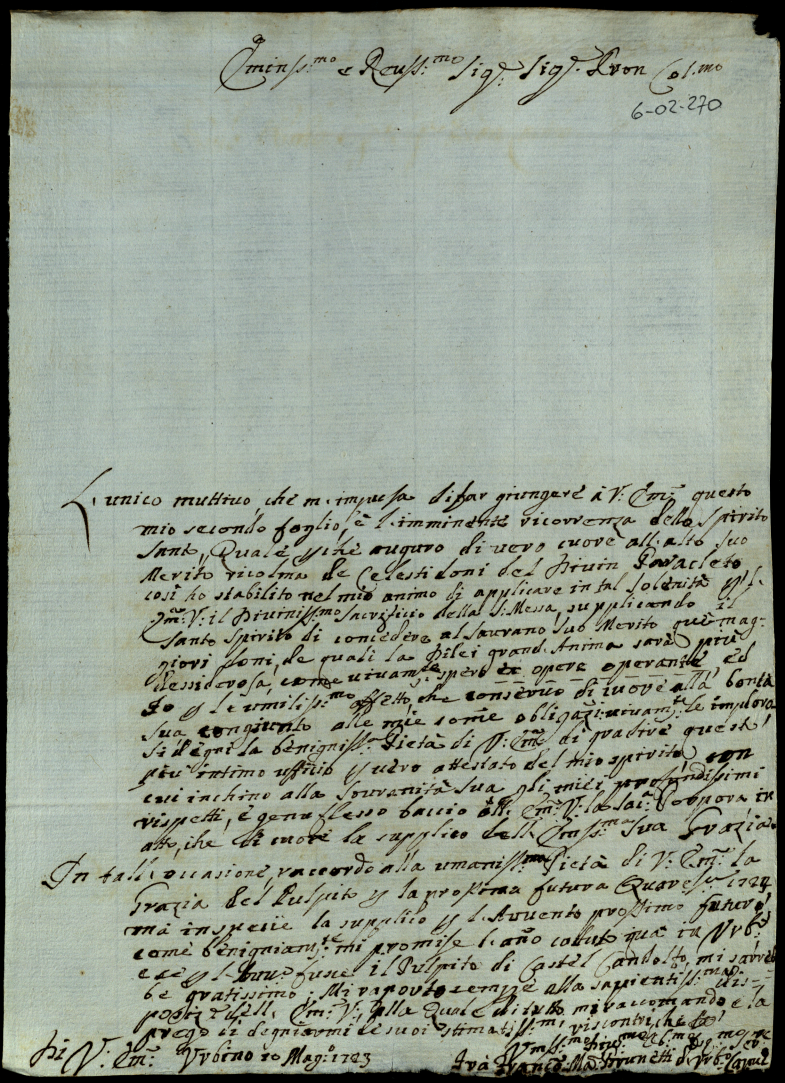 Eminss:mo e Reuss:mo Sigr. Sigr. Pron Col:mo
6-02-270
L'unico muttivo, che m'impulsa di far giungere à V: Em: questo
mio secondo foglio, è l'imminente ricorrenza dello Spirito
Santo, Quale auguro di vero cuore all'alto suo
Merito ricolma de Celesti doni del Divin Paracleto
così hò stabilito nel mio animo di applicare in tal solenità
Em: V: il Divinissmo Sacrificio della S: Messa, supplicando il
Santo Spirito di concedere al Sourano Suo Merito què mag-
giori doni, de quali la di lei grand'Anima sarà più
dessiderosa, come vivamte: spero ex opere operantis, ed
Io le umiliss:mo affetto, che conservo di cuore alla bontà
sua congiunto alle mie somè obligaz:i vivamte: le implora
si degni la benigniss: Pietà di V: Em: di gradire quest'
più intimo ufficio vero attestato del mio spirito, con
cui inchino alla Souranità Sua gli miei profondissimi
rispetti, e genuflesso baccio all' Em: V: la Sac: Porpora in
atto, che di cuore la supplico dell' Emss:ma Sua Grazia.
In tall'occasione, raccordo alla umaniss:ma Pietà di V: Em: la
Grazia del Pulpito la prossima futura Quares: 1724
mà in specie la supplico l'Avvento prossimo futuro
come benigniamte: mi promise l'año caduto quà in Urb:o
e se fusse il Pulpito di Castel Gandolfo, mi sareb-
be gratissimo. Mi rapporto sempre alla sapientiss:ma dis-
dell' Em: V:, alla Quale di tutto mi raccomando e la
prego di degniarmi de suoi stimatiss:mi riscontri, che
Di V: Em: Urbino 10 Mag: 1723
Frà Franc:o Ma: Brunetti d'Urb:o